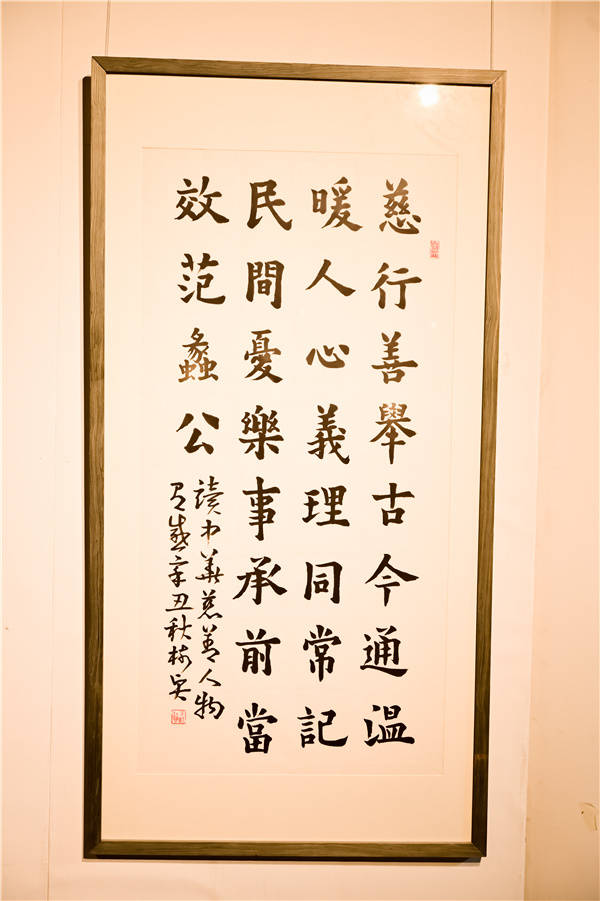 慈行善舉古今通溫
暖人心義理同常記
民間憂樂事承前當
效范蠡公
讀中華慈善人物
有感辛丑秋